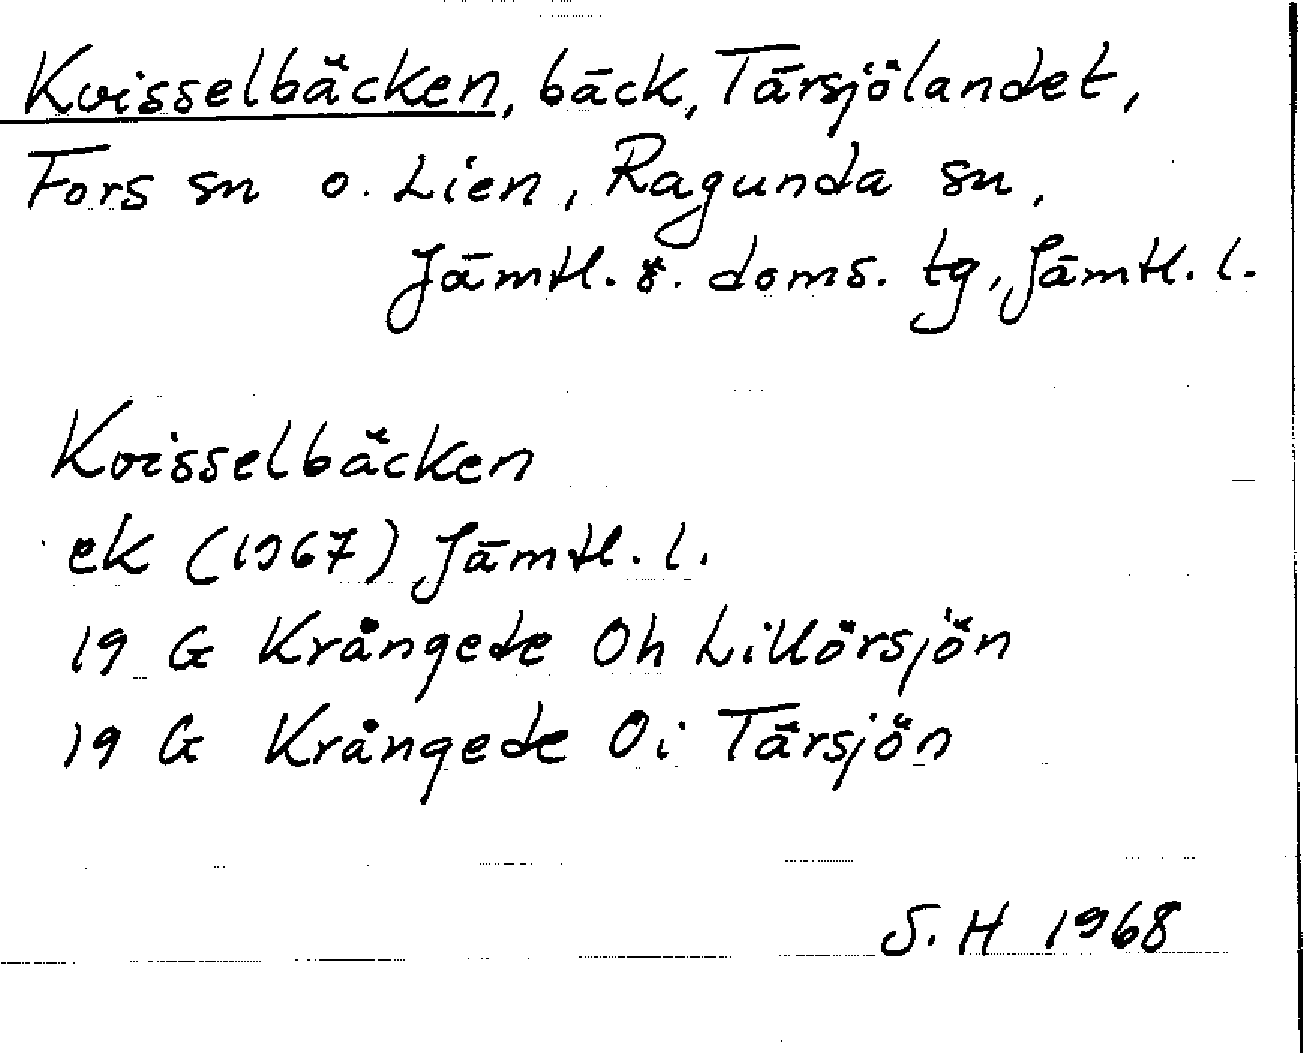 Kvisselbäcken, bäck, Tärsjölandet,
Fors sn o. Lien, Ragunda sn,
Jämtl. ö. doms. tg, Jämtl. l.
Kvisselbäcken
ek (1967) Jämtl. l.
19 G Krångede Oh Lillörsjön
19 G Krångede Oi Tärsjön
S. H 1968